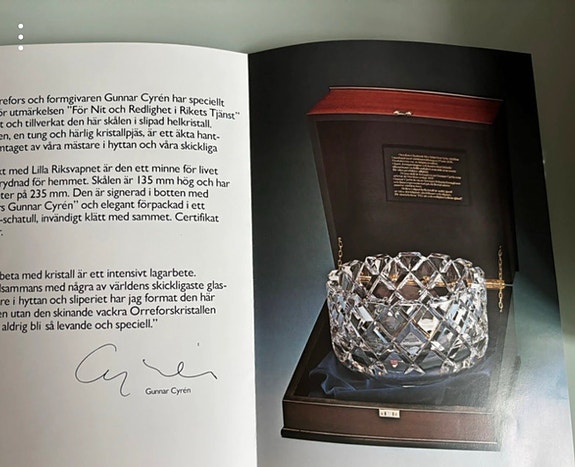 refors och formgivaren Gunnar Cyrén har speciellt
ör utmärkelsen "För Nit och Redlighet i Rikets Tjänst"
t och tillverkat den här skålen i slipad helkristall.
en, en tung och härlig kristallpjäs, är ett äkta hant-
mtaget av våra mästare i hyttan och våra skickliga
kt med Lilla Riksvapnet är den ett minne för livet
rydnad för hemmet. Skålen är 135 mm hög och har
ter på 235 mm. Den är signerad i botten med
s Gunnar Cyrén" och elegant förpackad i ett
-schatull, invändigt klätt med sammet. Certifikat
r.
beta med kristall är ett intensivt lagarbete.
lsammans med några av världens skickligaste glas-
re i hyttan och sliperiet har jag format den här
en utan den skinande vackra Orreforskristallen
aldrig bli så levande och speciell."
Cyrén
Gunnar Cyrén